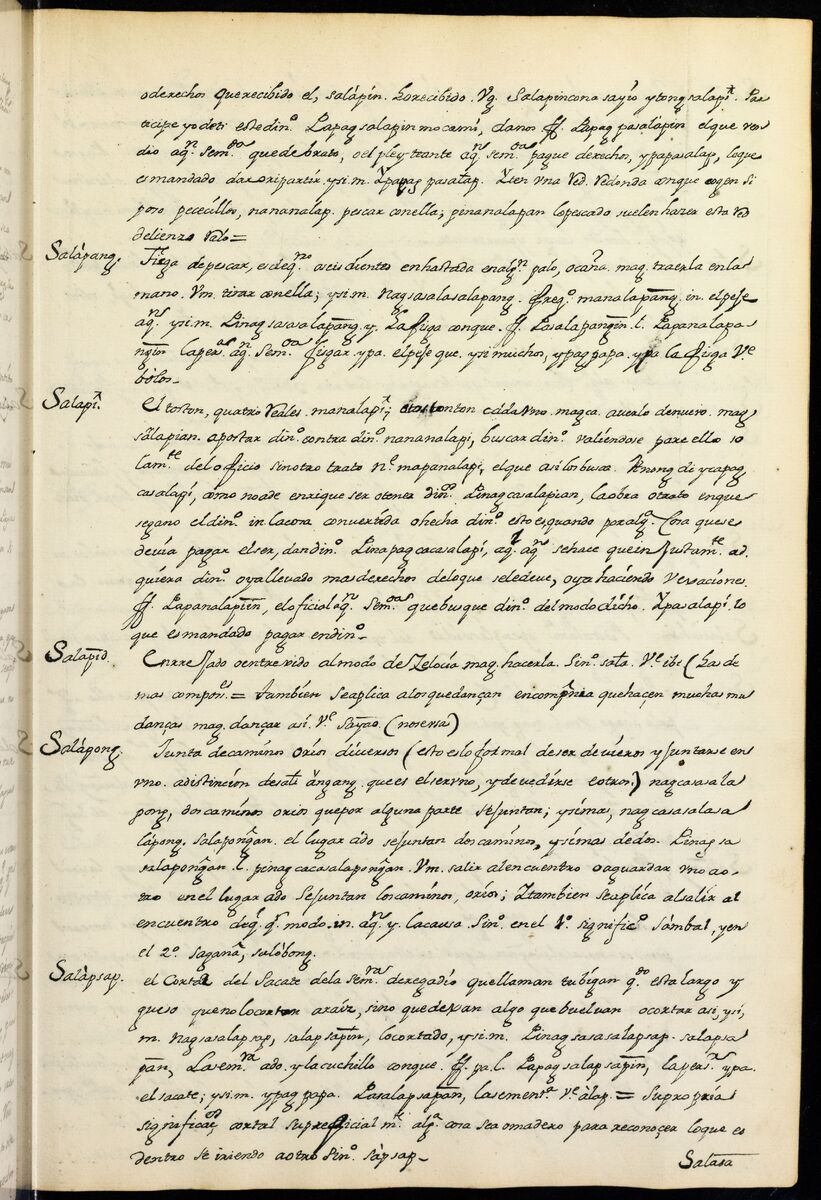 o derechos que recibido el, salàpin. Lo recibido. Vg. Salapin cona sayío ytong salapî. Par
ticipe yo de ti este dinº. Lapag salapin mo camí, danos ff. Lapag pasalapin el que ven
dio aqⁿ semᵈᵒ que debrato, o el pleyteante aqⁿ semᵒᵃ pague derecho, y papasalap, loque
es mandado dar o ripartir. y si. m. Ypapag pasalap. Yten vna red. redonda con que cogen si
poro pececillos, nananalap. pescar con ella; pinanalapan lo pescado suelen hazer esta red
de lienzo ralo =
Salápang. Fisga de pescar, es deqᵗʳᵒ a seis dientes enhastada en algⁿ palo, o caña. mag. traerla en la
mano. Vm. tirar con ella; y si. m. Nag sasalasalapang. freqº. manalapāng. in. el pese
aqⁿ. y si. m. Linag sasasalapāng. y. La fisga con que. ff. Pasalapangin. l. Lapanalapa
ngin la persᵃ aqⁿ Semᵒᵃ fisgar y pa. el pese que, y si muchos, y pag papa. y pa la fisga Vᵉ
bolos -
Salapî. El toston, quatro reales. manalapî; tonton cada vno. mag ca. averlo de nuevo. mag
sàlapian. apostar dinº. contra dinº. nananalapi, buscar dinº. valiendose para ello so
lamᵗᵉ del officio sin otro trato Nᵒ. mapanalapí, el que asi los busca. Anong di ycapag
casalapí, como no ade enriqueser o tener dinº. Linag casalapian, la obra o trato en que
se gano el dinº. in la cosa convertida o hecha dinº. esto es quando por algᵃ. cosa que se
devia pagar el ser, dan dinº. Linapag cacasalapí, aq. aqⁿ se hace que in justamᵗᵉ ad
quiera dinº. o ya llevado mas derechos delo que sele deve, o ya haciendo vexaciones.
ff. Lapanalapíin, el oficial aqⁿ. Semᵒᵃ que busque dinº. del modo dicho. Ypasalapí. lo
que es mandado pagar en dinº -
Salapid. Enrrejado o entrevido al modo de Zelocia mag. hacerla. Sinº. sala. Vᵉ ibi (las de
mas composˢ. = Tambien se aplica alos que dançan en compañia que haçen muchas mu
danças mag. dançar así. Vᵉ Sayao. (no se usa)
Salápong. Junta de caminos o ríos diversos (esto es lo formal de ser diversos y juntarse en
vno. a distinción de sali ÿangang. que es el ser vno, y devedirse en otros) nag casasala
pong, dos caminos o rios que por alguna parte se juntan; y si mas, nag casasalasa
lápong. Salapongan. el lugar ado se juntan dos caminos, y si mas de dos. Linag sa
salapongan. l. pinag cacasalapongan. Vm. salir al encuentro o aguardar vno a o
tro en el lugar ado se juntan los caminos, o rios; Y tambien se aplica al salir al
encuentro de qᵉ qʳ. modo. in. aqⁿ. y. la causa. Sinº. en el 1º. significº sámbal, y en
el 2º. saganā, sulòbong.
Salàpsap. el Cortar del Sacate dela semᵗʳᵃ de regadío que llaman tubígan qᵈᵒ esta largo y
gueso que no lo cortan a raiz, sino que dexan algo que buelvan o cortar asi, y si,
m. Nag sasalapsap, salapsapin, lo cortado, y si. m. Linag sasasalapsap. salapsa
pan, La semᵗʳᵃ ado. y la cuchillo con que. ff. pa. l. Lapag salapsapin, la persⁿᵃ y pa.
el sacate; y si. m. y pag papa. Pasalapsapan, la sementᵃ. Vᵉ álap. = Su propria
significacᵒⁿ cortal superficial mᵗᵉ algᵃ cosa sea o madero para reconocer lo que es
dentro se iriendo a otro Sinº. sàpsap -
Salasa